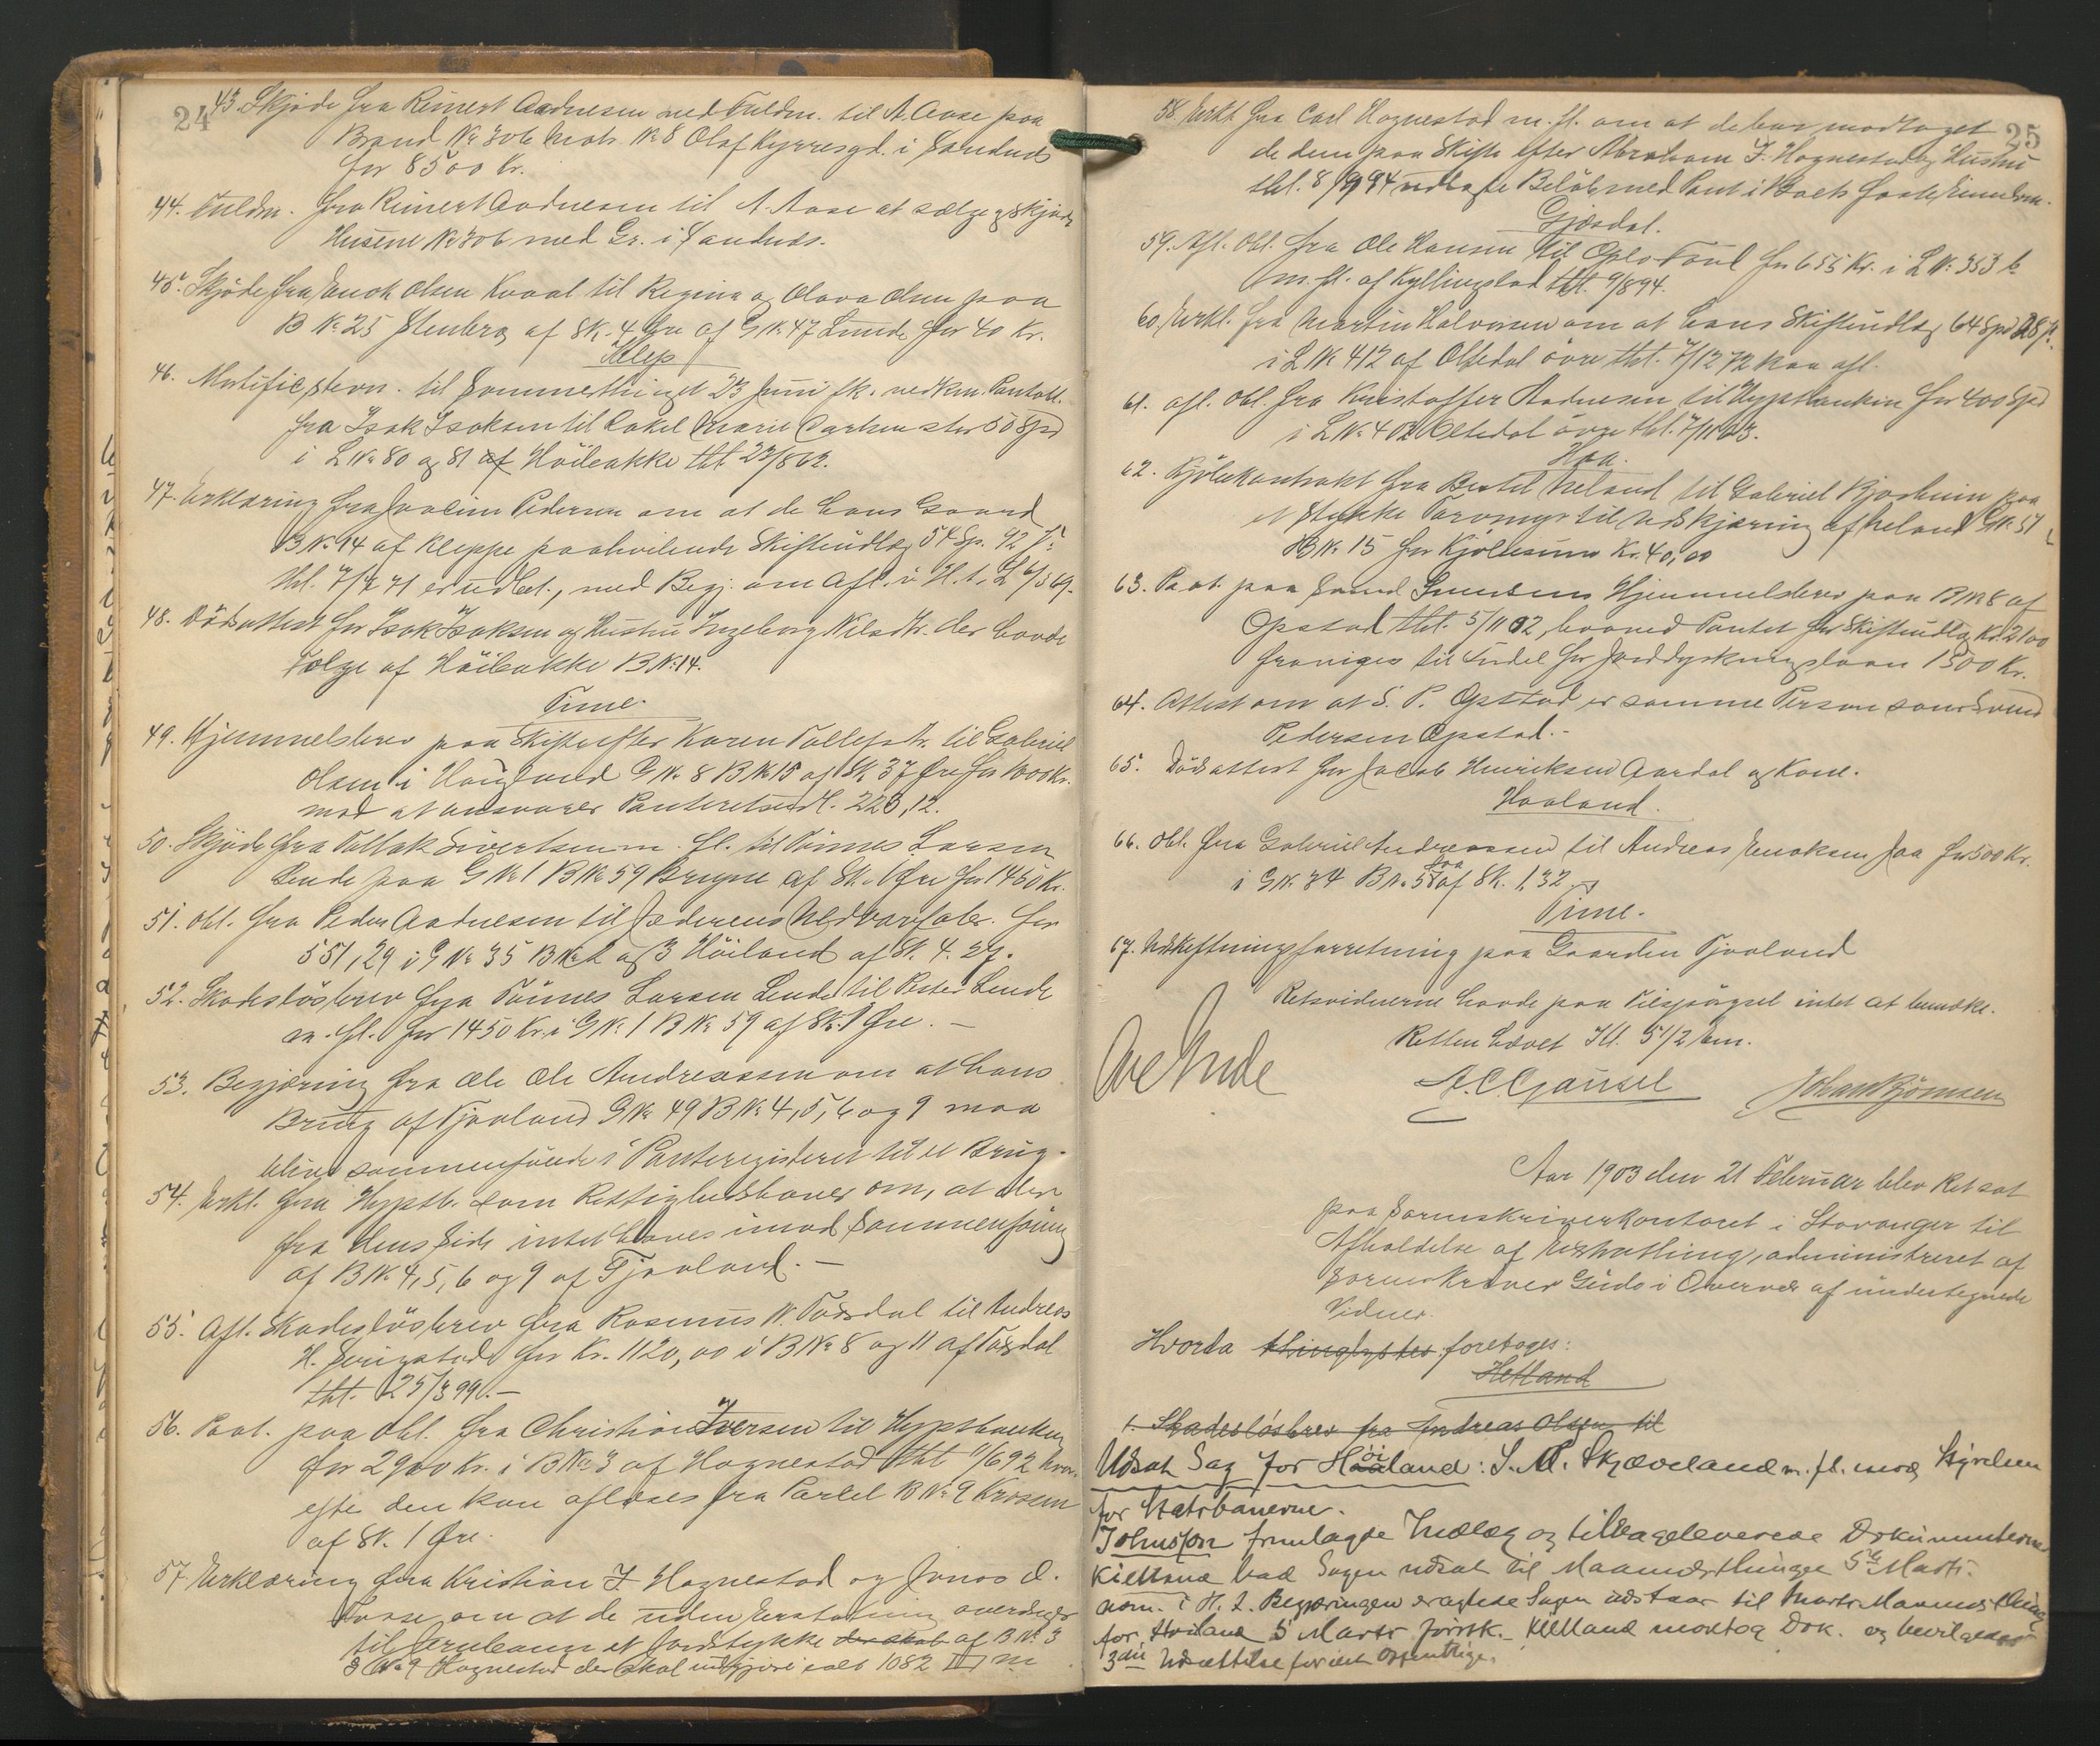 24
43. Skjöde fra Reinert Aadnesen med Fuldm. til A. Aase paa
Brand No 306 Matr. No 8 Olaf Kyrresgd. i Sandnæs
for 8500 Kr.
44. Fuldm. fra Reinert Aadnesen til A. Aase at sælge og skjöde
Husene No 306 med Gr. i Sandnæs.
45. Skjöde fra Enok Olsen Kvaal til Regina og Olava Olsen paa
B No 25 Stenberg af Sk. 4 Öre af G No 47 Lunde for 40 Kr.
Klep
46. Mortific. stevn. til Sommerthinget 23 Juni fk. vedkm. Pantobl.
fra Isak Isaksen til Rakel Marie Carlsen stor 50 Spd
i L No 80 og 81 af Höibakke thl. 23/8 62.
47. Erklæring fra Paaline Pedersen om at de hans Gaard
B No 14 af Kleppe paahvilende Skifteudlæg 54 Sp. 92 s.
thl. 7/7 71 er udbet., med Begj. om Afl. i H. t. L 6/3 69.
48. Dödsattest for Isak Isaksen og Hustru Ingeborg Nilsdtr. der havde
Folge af Höibakke B No 14.
Time.
49. Hjemmelsbrev paa Skifte efter Karen Tollefsdtr. til Gabriel
Olsen i Haugland G No 8 B No 15 af Sk 37 Öre for 1000 Kr.
mod at ansvare Panteretsudl. 223,12.
50. Skjöde fra Tollak Sivertsen m. fl. til Tönnes Larsen
Lende paa G No 1 B No 59 Bryne af Sk. 1 Öre for 1450 Kr.
51. Obl. fra Peder Aadnesen til Jæderens Uldvarefabr. for
551,29 i G No 35 B No 2 og 3 Höiland af Sk. 4.27.
52. Skadeslösbrev fra Tönnes Larsen Lende til Peter Lende
m. fl. for 1450 Kr. i G No 1 B No 59 af Sk. 1 Öre. —
53. Begjæring fra Ole Ole Andreassen om at hans
Brug af Tjaaland G No 49 B No 4, 5, 6 og 9 maa
blive sammenföiede i Panteregisteret til et Brug.
54. Erkl. fra Hypothb. som Rettighedshaver om, at der
fra dens Side intet haves imod Sammenföining
af B No 4, 5, 6 og 9 af Tjaaland. —
55. Afl. Skadeslösbrev fra Rasmus N. Taksdal til Andreas
H. Serigstad for Kr. 1120,00 i B No 8 og 11 af Taksdal
thl. 25/3 99. —
56. Paat. paa Obl. fra Christian Iversen til Hypothbanken
for 2900 Kr. i B No 3 af Hognestad thl. 11/6 92 hvor-
efter den kan aflæses fra Parcel B No 9 Krossen
af Sk. 1 Öre.
57 Erklæring fra Kristian I Hognestad og Jonas O.
Fosse om at de uden Erstatning overdrager
til Jernbanen et Jordstykke der skal af B No 3
G No 9 Hognestad der skal udgjöre ialt 1082 □ m
25
58. Erkl. fra Carl Hognestad m. fl. om at de har modtaget
de dem paa Skifte efter Abraham I. Hognestad og Hustru
thl. 8/9 94 udlagte Belöb med Pant i Boets faste Eiendom.
Gjæsdal.
59. Afl. Obl. fra Ole Hansen til Oplo Foul for 655 Kr. i L No 353 b
m. fl. af Kyllingstad thl. 9/8 94.
60. Erkl. fra Martin Halvorsen om at hans Skifteudlæg 64 Spd 28 s.
i L No 412 af Oltedal övre thl. 7/12 72 kan afl.
61. afl. Obl. fra Kristoffer Aadnesen til Hypothbanken for 400 Spd
i L No 402 Oltedal övre thl. 7/11 63.
Haa.
62. Kjöbekontrakt fra Bertel Neland til Gabriel Bjorheim paa
et Stykke Torvmyr til Udskjæring af Neland G No 51
B No 15 for Kjöbesum Kr. 40,00
63. Paat. paa Svend Svendsens Hjemmelsbrev paa B No 8 af
Opstad thl. 5/11 02, hvorved Pantet for Skifteudlæg Kr. 2100
fraviges til Fordel for Jorddyrkningslaan 1500 Kr.
64. Attest om at S. P. Opstad er samme Person som Svend
Pedersen Opstad. -
65. Dödsattest for Jacob Henriksen Aardal og Kone.
Haaland.
66. Obl. fra Gabriel Andreassen til Andreas Enoksen Jaa for 500 Kr.
i G No 34 B No 58 af Sk. 1,32
Time.
67. Udskiftningsforretning paa Gaarden Tjaaland
Retsvidnerne havde paa Tilspörgsel intet at bemærke.
Retten hævet Kl. 5 1/2 Em.
A. C. Gausel Johan Björnsen
Aar 1903 den 21 Februar blev Ret sat
paa Sorenskriverkontoret i Stavanger til
Afholdelse af Extrathing, administreret af
Sorenskriver Gude i Overvær af undertegnede
Vidner.
Hvorda thinglystes foretoges:
Hetland
1. Skadeslösbrev fra Andreas Olsen til
Udsat Sag for Höiland: S. M. Skjæveland m. fl. mod Styrelsen
for Statsbanerne.
Johnson fremlagde Indlæg og tilbageleverede Dokumenterne
Kielland bad Sagen udsat til Maanedsthinget 5te Marts.
adm. i H. t. Begjæringen eragtede Sagen udstaar til Marts Maanedsthing
for Höiland 5 Marts förstk. Kielland modtog Dok. og bevilgedes
3die Udsættelse for det Offentlige.